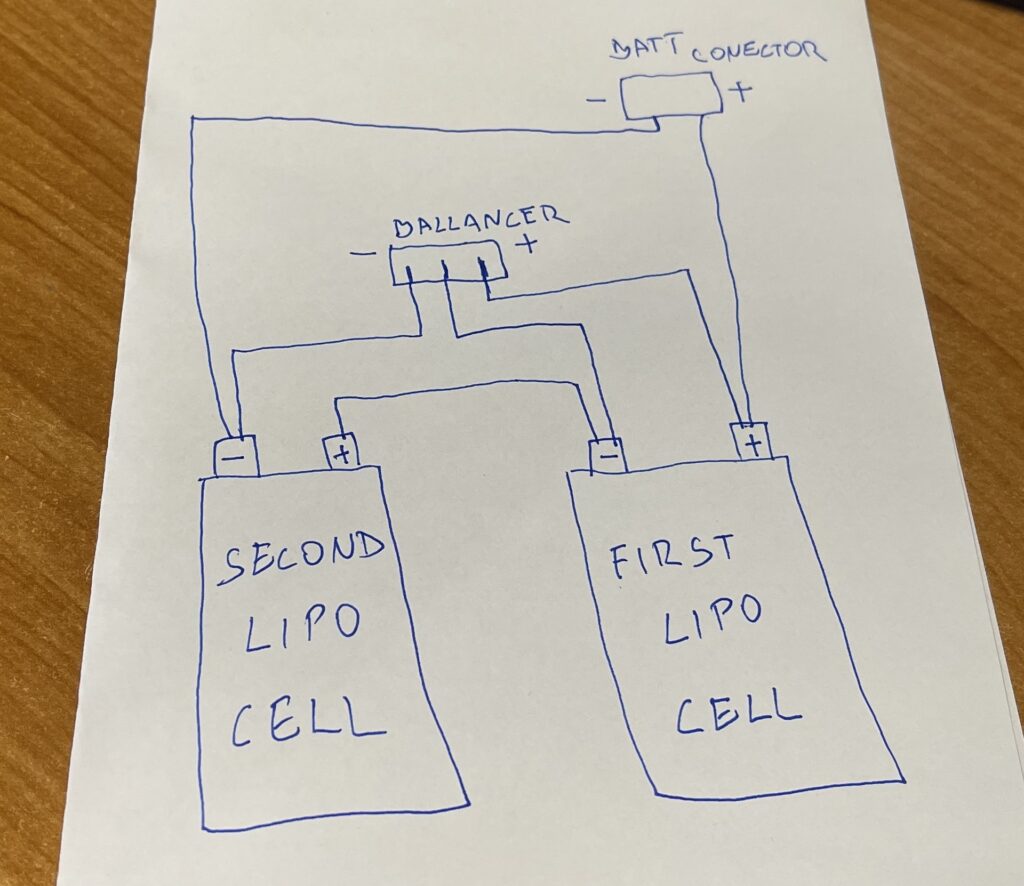 BATT CONECTOR
- +
BALLANCER
- +
- + - +
SECOND
LIPO
CELL
FIRST
LIPO
CELL